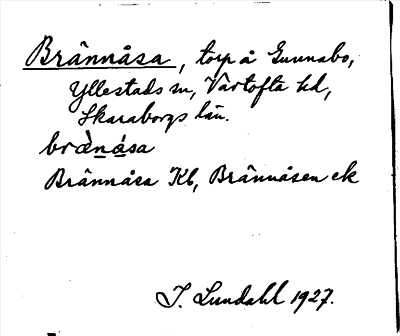 Brännåsa, torp å Gunnabo,
Yllestads sn, Vartofta hd,
Skaraborgs län.
brànása
Brännåsa Kb, Brännåsen ek
I. Lundahl 1927.